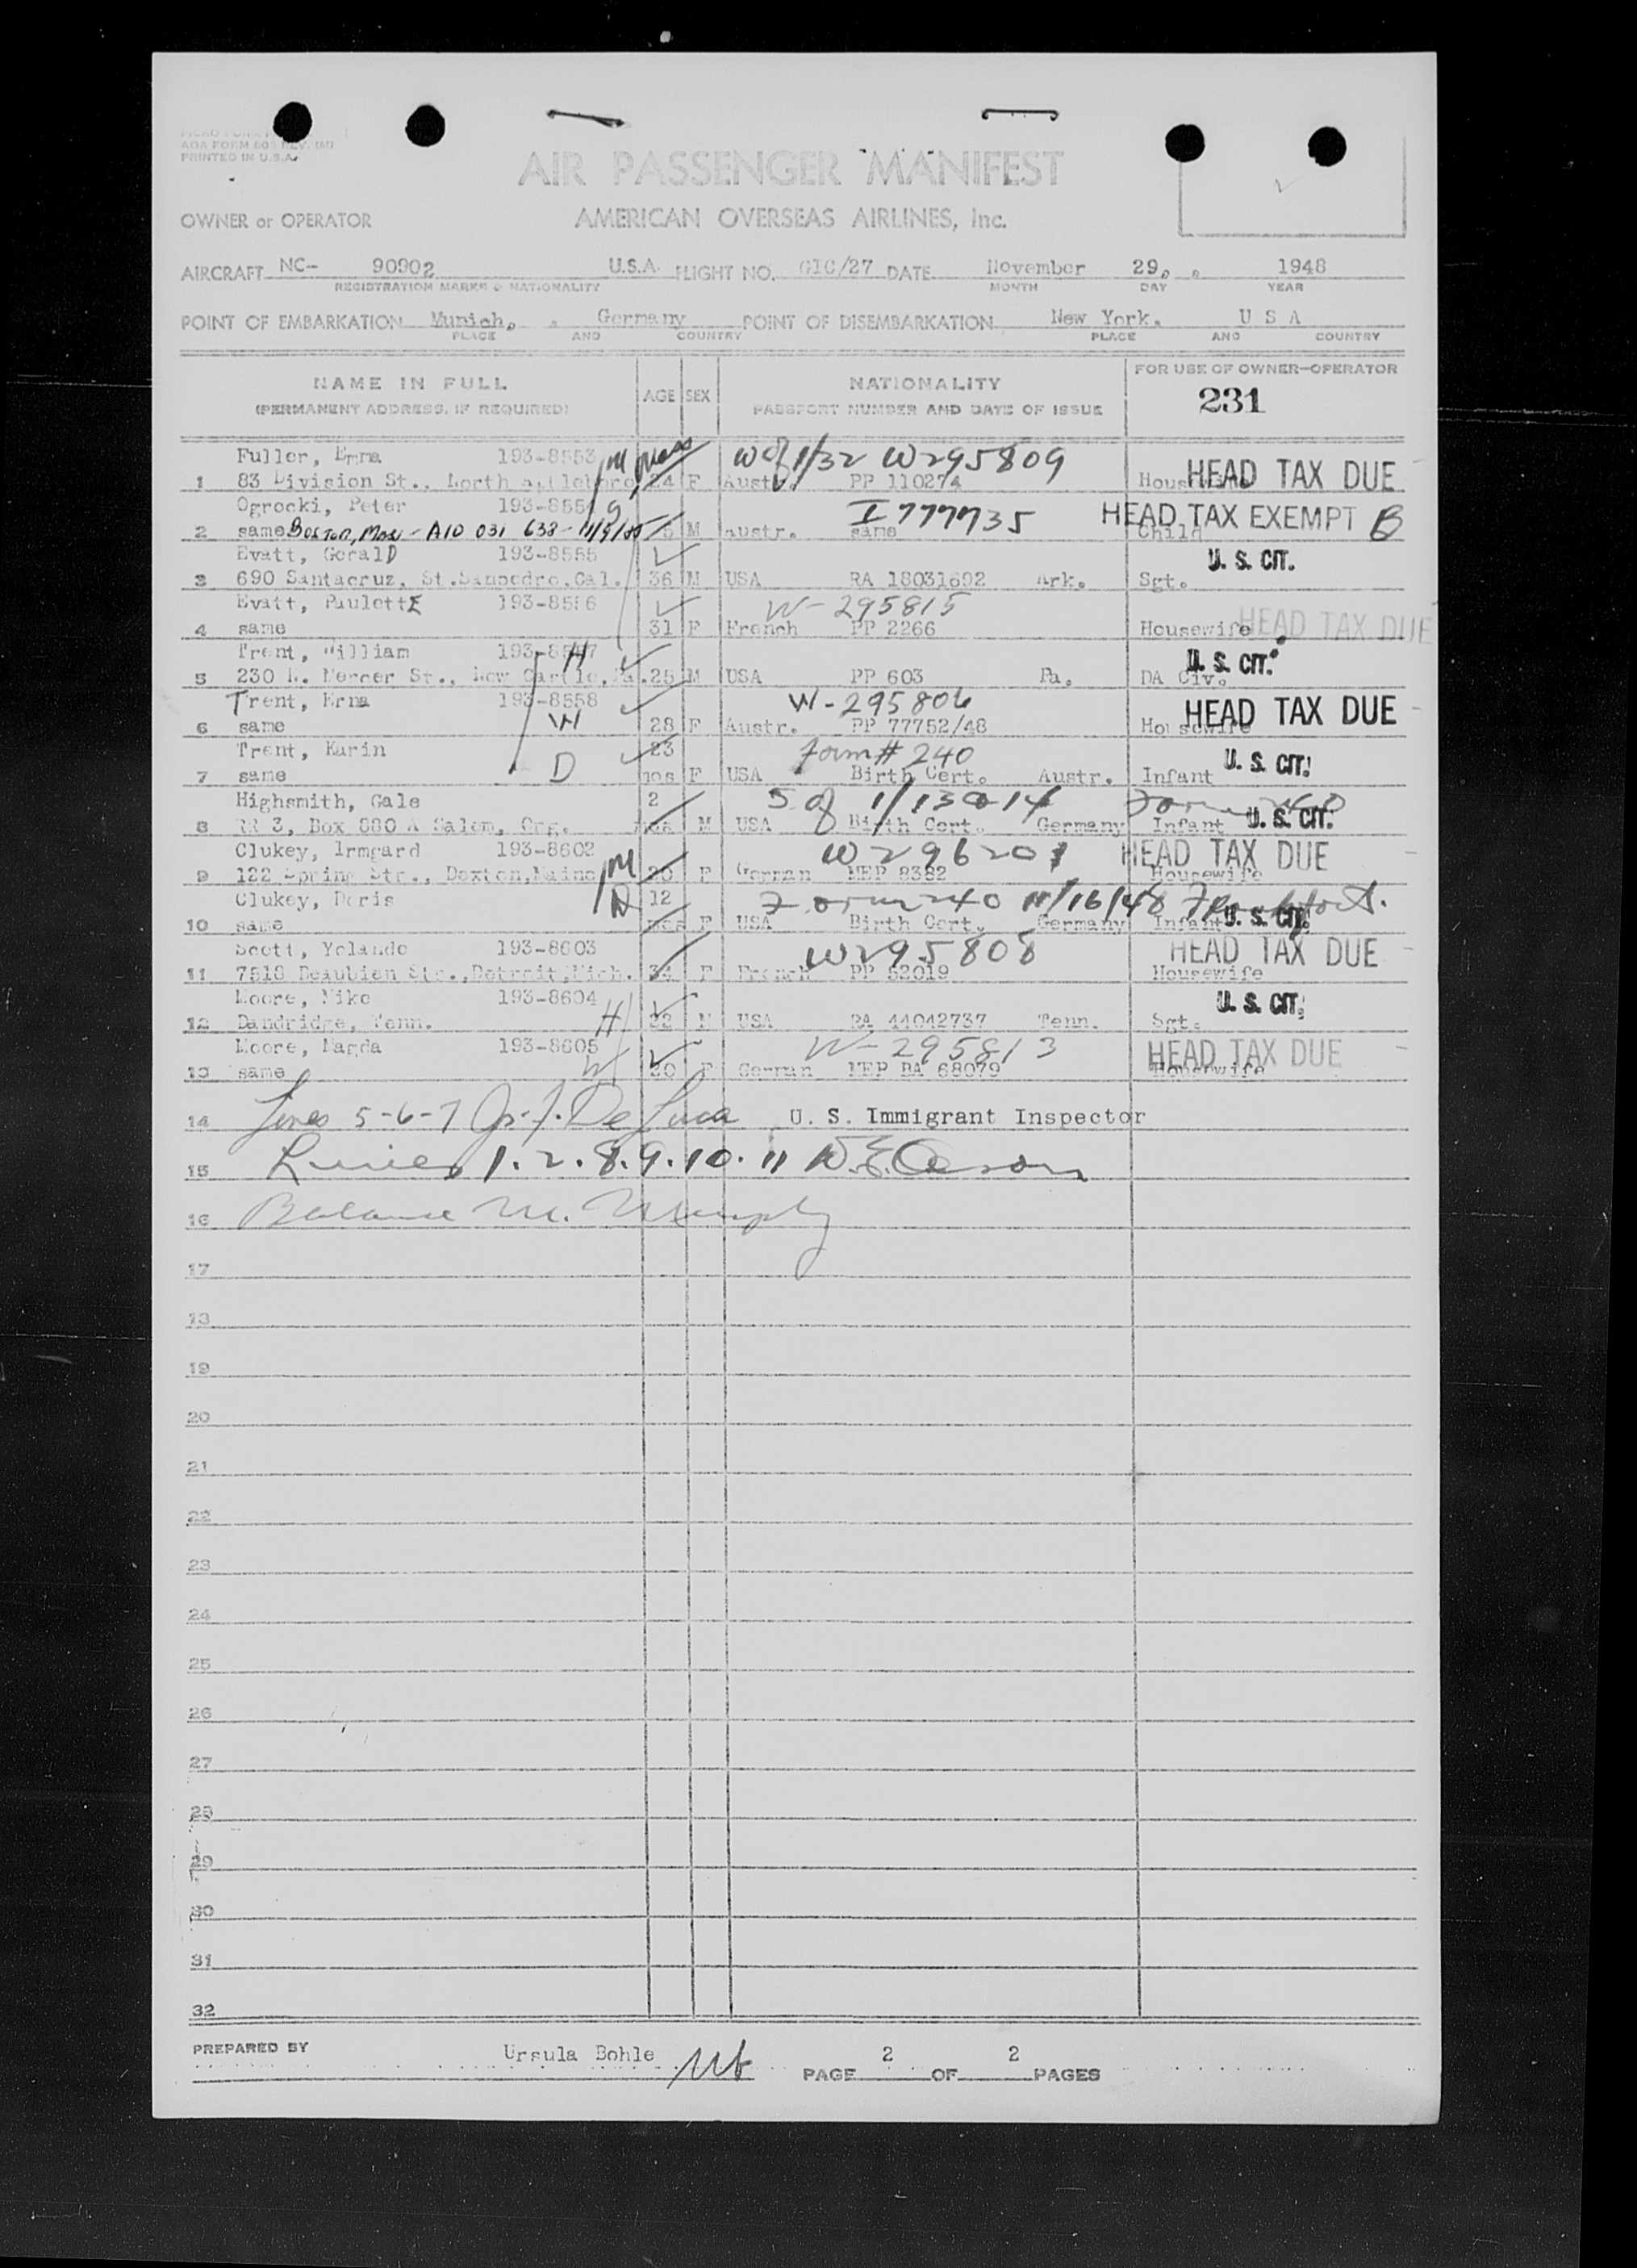 AOA FORM 603 REV.
PRINTED IN U.S.A.
AIR PASSENGER MANIFEST
OWNER or OPERATOR AMERICAN OVERSEAS AIRLINES, Inc.
AIRCRAFT NC- 90902 U.S.A. FLIGHT NO. /27 DATE November 29, 1948
REGISTRATION MARKS & NATIONALITY MONTH DAY YEAR
POINT OF EMBARKATION Munich, Germany POINT OF DISEMBARKATION New York. U S A
PLACE AND COUNTRY PLACE AND COUNTRY
NAME IN FULL AGE SEX NATIONALITY FOR USE OF OWNER-OPERATOR
(PERMANENT ADDRESS, IF REQUIRED) PASSPORT NUMBER AND DATE OF ISSUE 231
Fuller, Emma 193-8553 W of 1/32 W295809
1 83 Division St., North 24 F Austr. PP 110274 Housewife HEAD TAX DUE
Ogrocki, Peter 193-855 I777735 HEAD TAX EXEMPT B
2 same Boston, Mass - A10 031 638 - M austr. same Child
Evatt, GeralD 193-8555 U. S. CIT.
3 690 Santacruz, St. Sanpedro, Cal. 36 M USA RA 18031692 Ark. Sgt.
Evatt, PaulettE 193-8556 W-295815
4 same 31 F French PP 2266 Housewife HEAD TAX DUE
Trent, William 193-8557 H U. S. CIT.
5 230 N. Mercer St., New Castle, Pa. 25 M USA PP 603 Pa. DA Civ.
Trent, Erna 193-8558 W-295806
6 same W 28 F Austr. PP 77752/48 Housewife HEAD TAX DUE
Trent, Karin 23 Form # 240 U. S. CIT.
7 same D mos F USA Birth Cert. Austr. Infant
Highsmith, Gale 2 5 of 1/13
8 RR 3, Box 880 A Salem, Org. mos M USA Birth Cert. Germany Infant U. S. CIT.
Clukey, Irmgard 193-8602 HEAD TAX DUE
9 122 Spring Str., Dexton, Maine 20 F German MEP 8382 Housewife
Clukey, Doris 12 Form 240 11/16/48 Frankfort.
10 same mos F USA Birth Cert. Germany Infant U. S. CIT.
Scott, Yolande 193-8603 W295808 HEAD TAX DUE
11 7518 Beaubien Str., Detroit, Mich. 34 F French PP 52019 Housewife
Moore, Mike 193-8604 U. S. CIT.
12 Dandridge, Tenn. H M USA RA 44042737 Tenn. Sgt.
Moore, Magda 193-8605 W-295813 HEAD TAX DUE
13 same W 20 F German MEP BA 68079 Housewife
14 Lines 5-6-7 De Luca U. S. Immigrant Inspector
15 Lines 1. 2. 8. 9. 10. 11
16 Balance M. Murphy
17
18
19
20
21
22
23
24
25
26
27
28
29
30
31
32
PREPARED BY Ursula Bohle PAGE 2 OF 2 PAGES